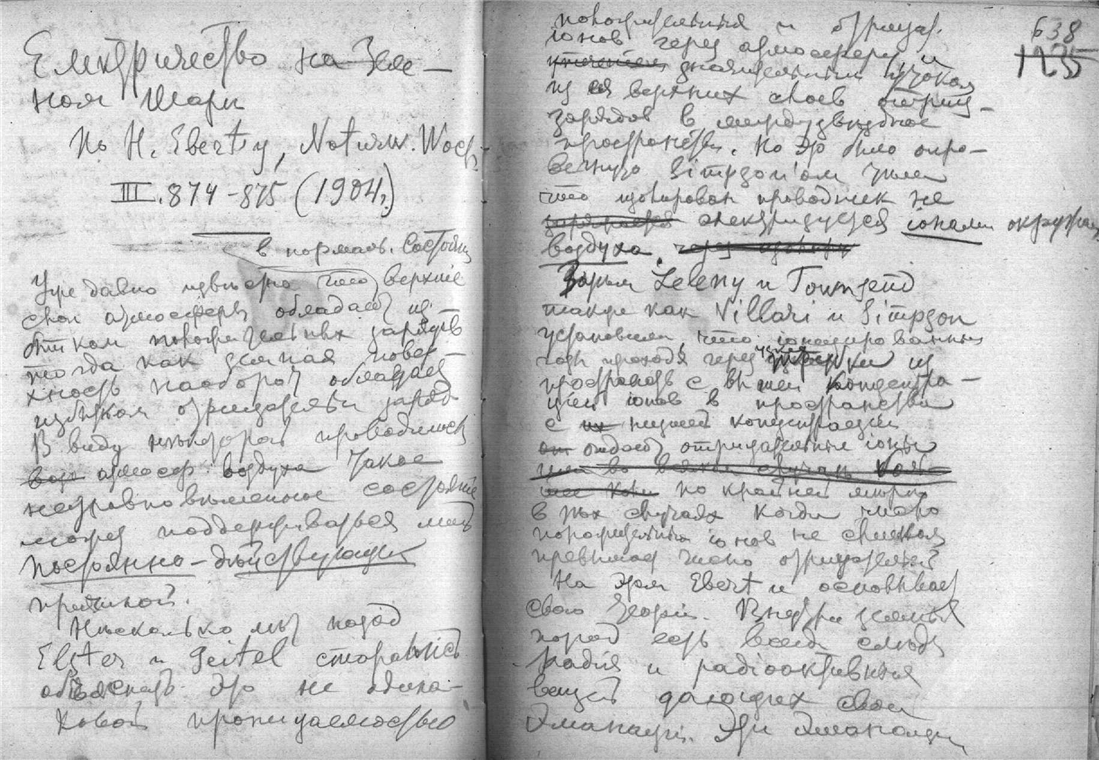 Електричество на Зем-
ном шари
По H. Ebert'у, Naturw. Woch.
III. 874-875 (1904г.)
в нормаль. состояніи
Уже давно извѣстно что верхніе
слои атмосферы обладают из-
бытком положительных зарядов
тогда как земная повер-
хность наоборот обладает
избытком отрицательн. заряд.
В виду нѣкоторой проводимости
атмосф. воздуха такое
неуравновѣшенное состояніе
может поддерживаться лишь
постоянно-дѣйствующей
причиной.
Нѣсколько лѣт назад
Elster и Geitel старались
объяснить это не одина-
ковой проницаемостью
638
1235
положительных и отрицат.
іонов через атмосферу и
значительным
из верхних слоев отриц-
зарядов в междузвѣздное
пространство. Но это было опро-
вергнуто Simpson'ом
что изолирован проводник не
электризуется іонами окружающ
воздуха.
Затѣм Zeleny и Townsend
также как Villari и Simpson
установили, что іонизированный
газ проходя через узкія трубки из
пространств с высшей концентра-
ціей іонов в пространства
с низшей концентраціей
отдают отрицательные іоны
по крайней мѣрѣ
в тѣх случаях когда число
положительных іонов не слишком
превышает число отрицателей
На этом Ebert и основывает
свою теорію. Внутри земных
пород есть всегда слѣды
радія и радіоактивных
веществ дающих свои
эманаціи. Эти эманаціи